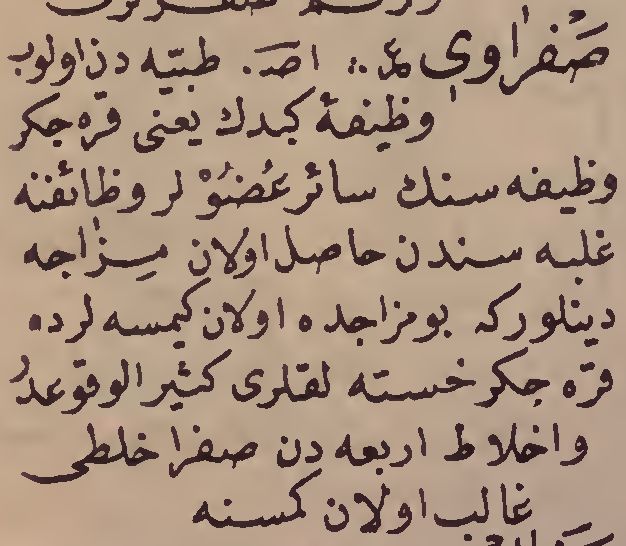 صَفراوي ع. اصـ. طبيّه دن اولوب
وظيفهٔ كبدك يعنى قره جكر
وظيفه سنك سائر عُضُوْ لر وظائفنه
غلبه سندن حاصل اولان مـزاجه
دينلوركه بو مزاجده اولان كيمسه لرده
قرّه جكر خسته لقلرى كثير الوقوعدُر
واخلاط اربعه دن صفرا خلطى
غالب اولان كمسنه